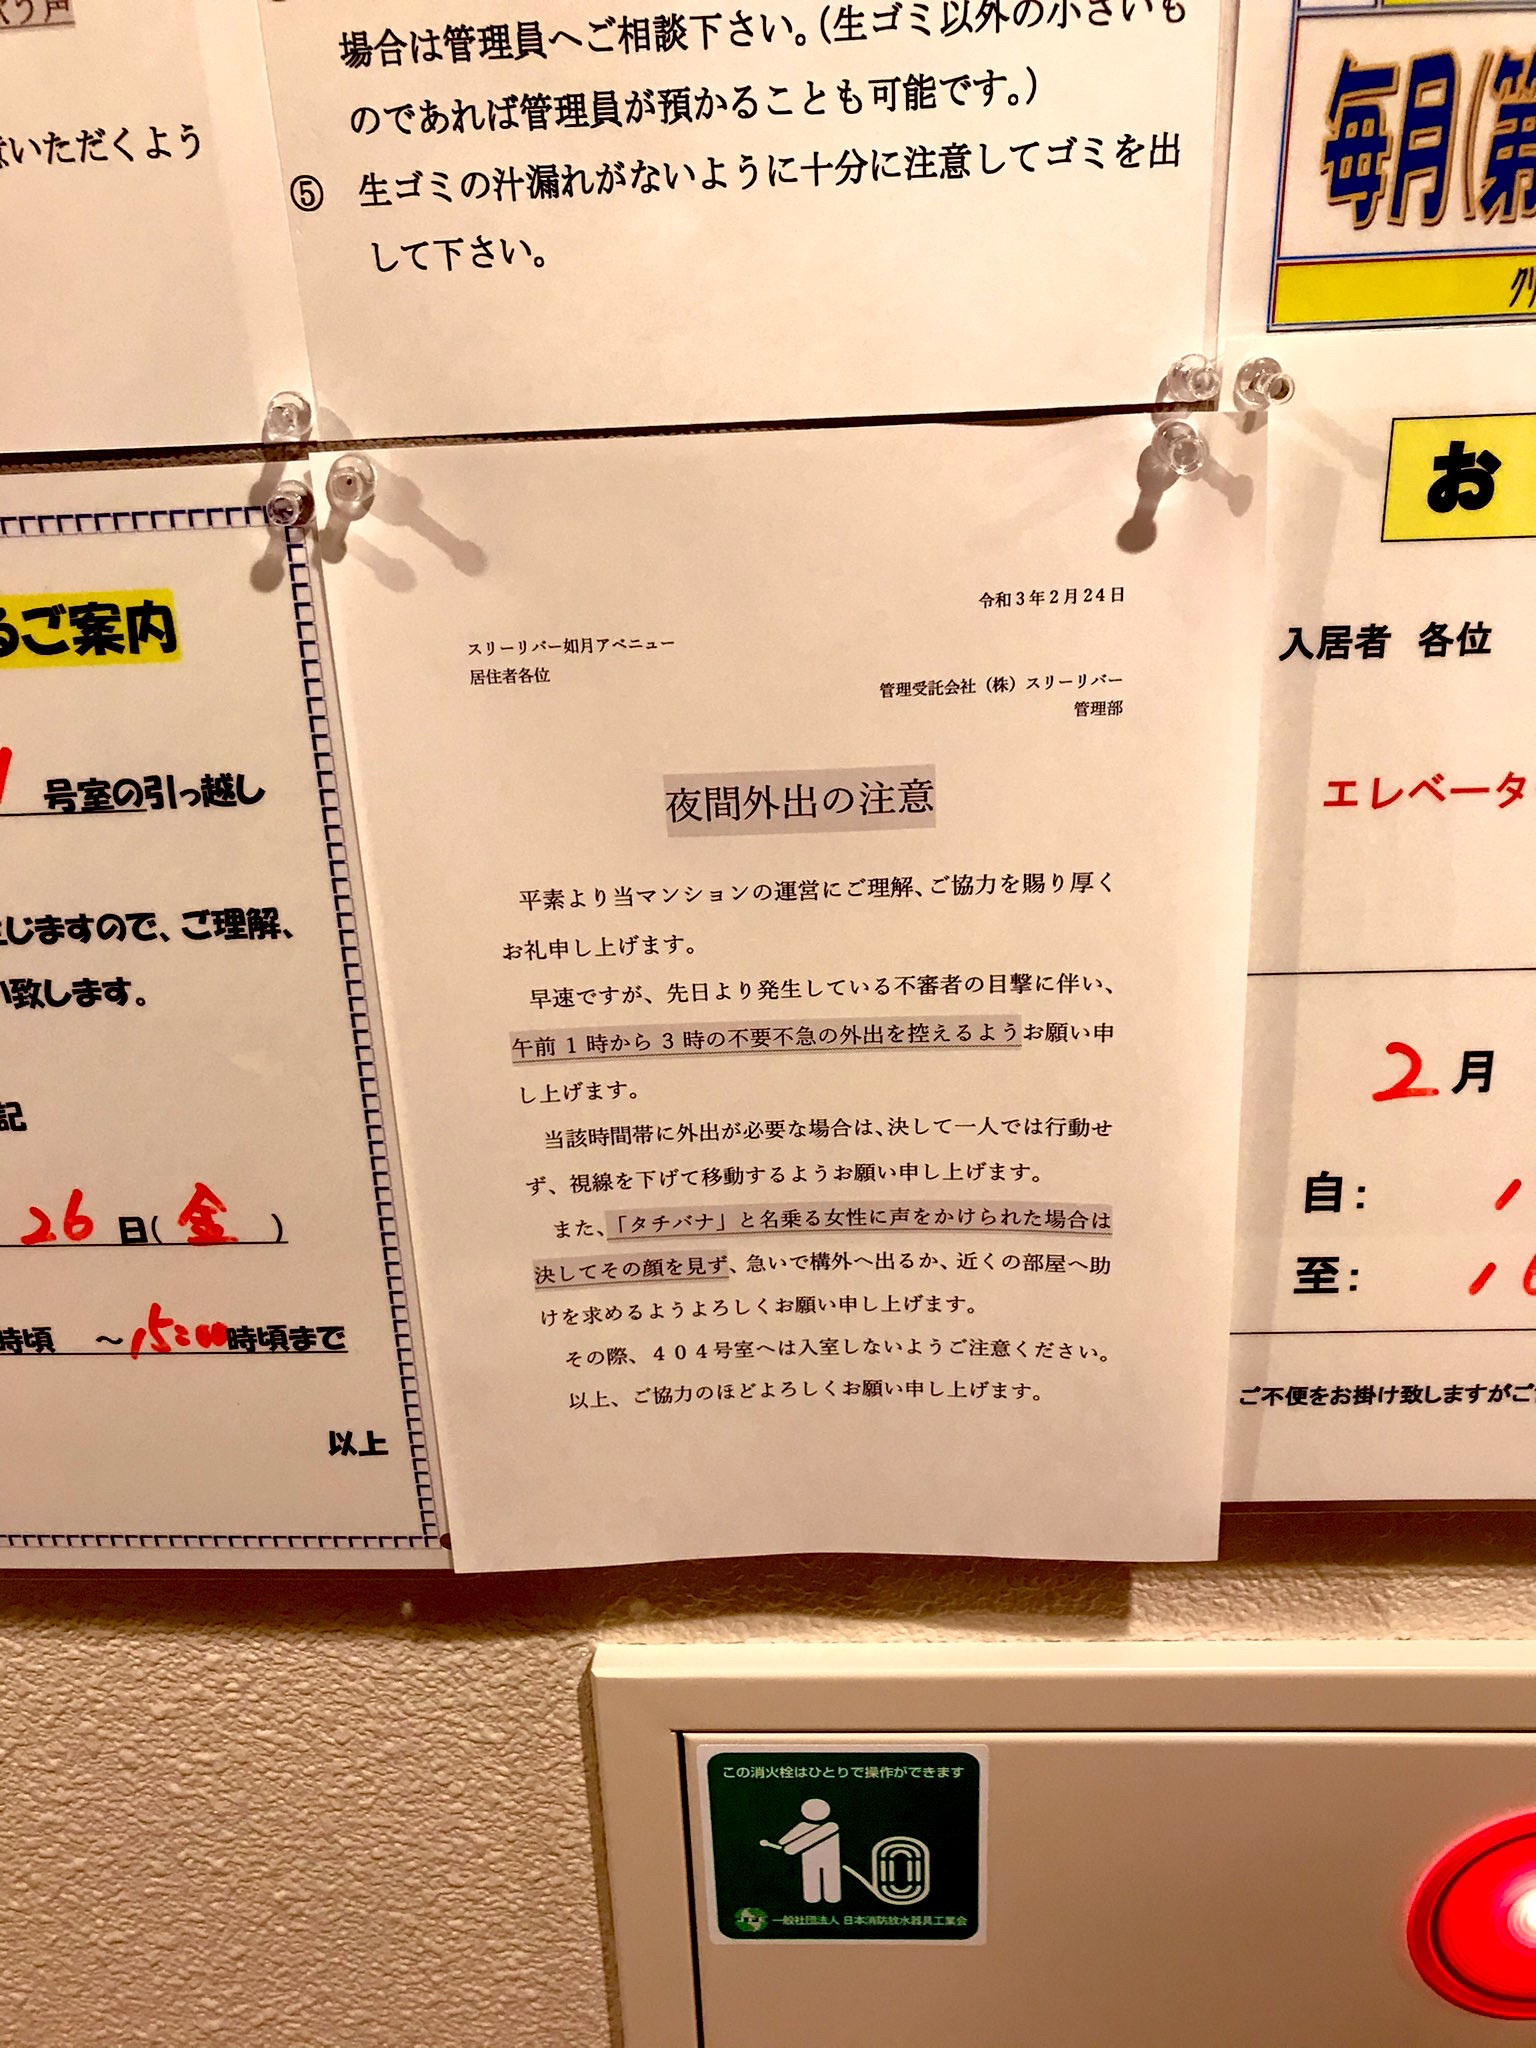 場合は管理員へご相談下さい。(生ゴミ以外の小さいも
のであれば管理員が預かることも可能です。)
⑤ 生ゴミの汁漏れがないように十分に注意してゴミを出
して下さい。
いただくよう
毎月(第
るご案内
号室の引っ越し
じますので、ご理解、
致します。
記
26日(金)
時頃 ～15:00時頃まで
以上
令和3年2月24日
スリーリバー如月アベニュー
居住者各位
管理受託会社(株)スリーリバー
管理部
夜間外出の注意
平素より当マンションの運営にご理解、ご協力を賜り厚く
お礼申し上げます。
早速ですが、先日より発生している不審者の目撃に伴い、
午前1時から3時の不要不急の外出を控えるようお願い申
し上げます。
当該時間帯に外出が必要な場合は、決して一人では行動せ
ず、視線を下げて移動するようお願い申し上げます。
また、「タチバナ」と名乗る女性に声をかけられた場合は
決してその顔を見ず、急いで構外へ出るか、近くの部屋へ助
けを求めるようよろしくお願い申し上げます。
その際、404号室へは入室しないようご注意ください。
以上、ご協力のほどよろしくお願い申し上げます。
お
入居者 各位
エレベータ
2月
自:
至:
ご不便をお掛け致しますがご
この消火栓はひとりで操作ができます
一般社団法人 日本消防放水器具工業会